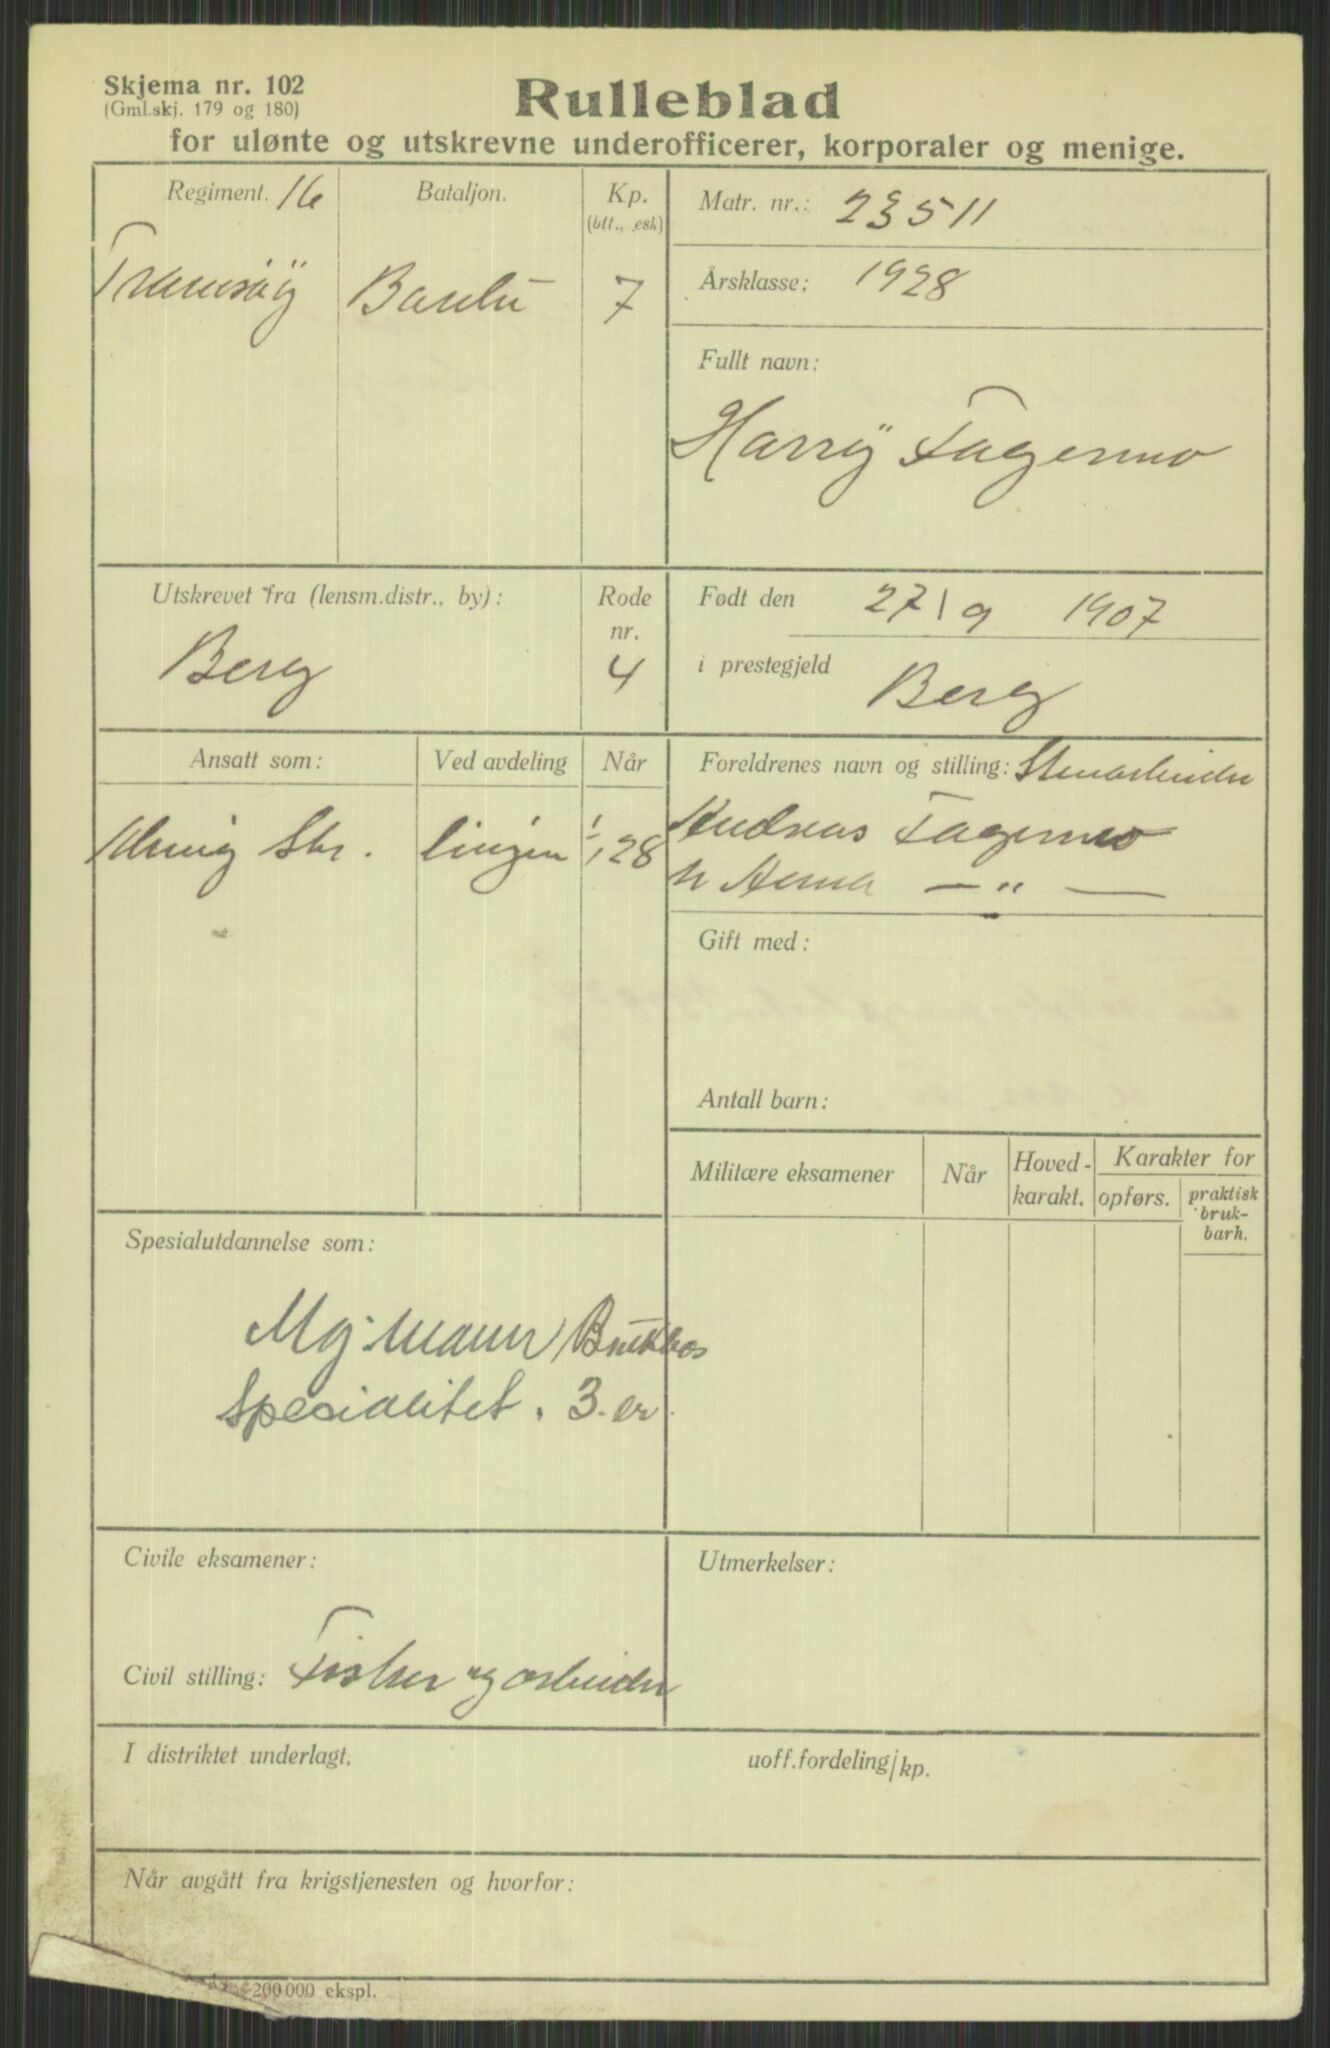 Skjema nr. 102
(Gml.skj. 179 og 180)
Rulleblad
for ulønte og utskrevne underofficerer, korporaler og menige.
Regiment. 16
Bataljon.
Kp.
(btt., esk)
Matr. nr.: 23511
Tromsøy
Bardu
7
Årsklasse: 1928
Fullt navn:
Harry Fagermo
Utskrevet fra (lensm.distr., by):
Rode
nr.
Berg
4
Født den 27/9 1907
i prestegjeld Berg
Ansatt som:
Ved avdeling
Når
Menig Str.
linjen
1/1 28
Foreldrenes navn og stilling: Stenarbeider
Andreas Fagermo
— „ —
Gift med:
Antall barn:
Militære eksamener
Når
Hoved-
karakt.
Karakter for
opførs.
praktisk
bruk-
barh.
Spesialutdannelse som:
Mg. mann
spesialitet. 3. er.
Civile eksamener:
Utmerkelser:
Civil stilling: Fisker og arbeider
I distriktet underlagt.
uoff.fordeling/kp.
Når avgått fra krigstjenesten og hvorfor:
200 000 ekspl.